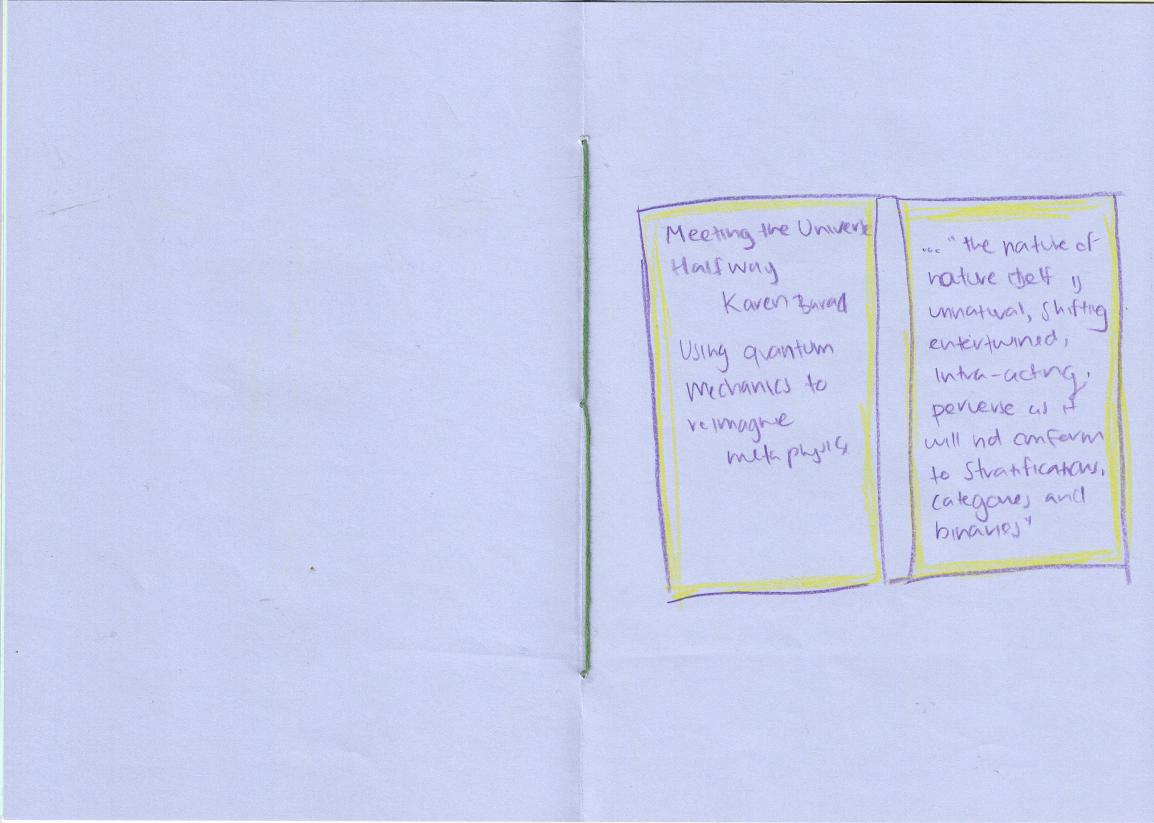 Meeting the Universe
Halfway
Karen Barad
Using quantum
mechanics to
reimagine
metaphysics
..." the nature of
nature itself is
unnatural, shifting
entertwined,
intra-acting,
perverse as it
will not conform
to stratifications,
categories and
binaries"